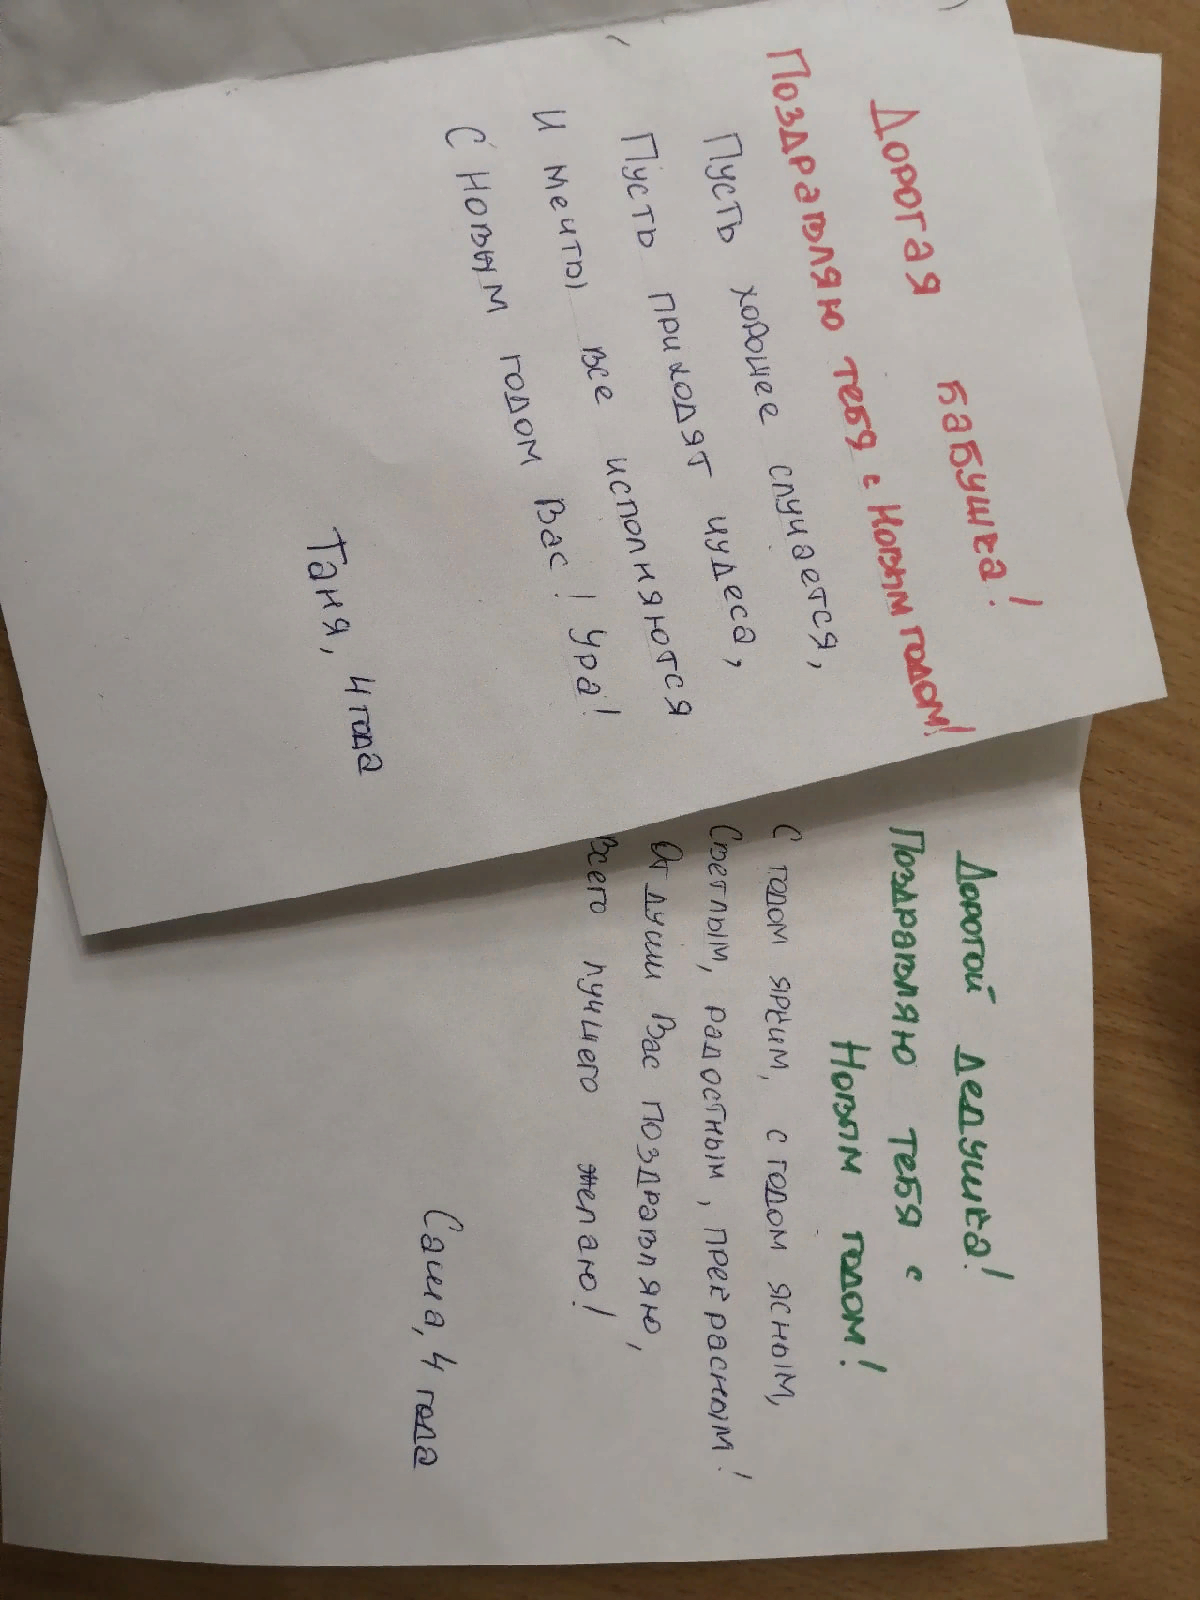 Дорогая бабушка!
Поздравляю тебя с Новым годом!
Пусть хорошее случается,
Пусть приходят чудеса,
И мечты все исполняются
С Новым годом Вас! Ура!
Таня, 4 года
Дорогой дедушка!
Поздравляю тебя с
Новым годом!
С годом ярким, с годом ясным,
Светлым, радостным, прекрасным!
От души Вас поздравляю,
Всего лучшего желаю!
Саша, 4 года